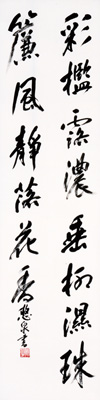 彩檻露濃垂柳濕珠
簾風靜落花香
惠泉書